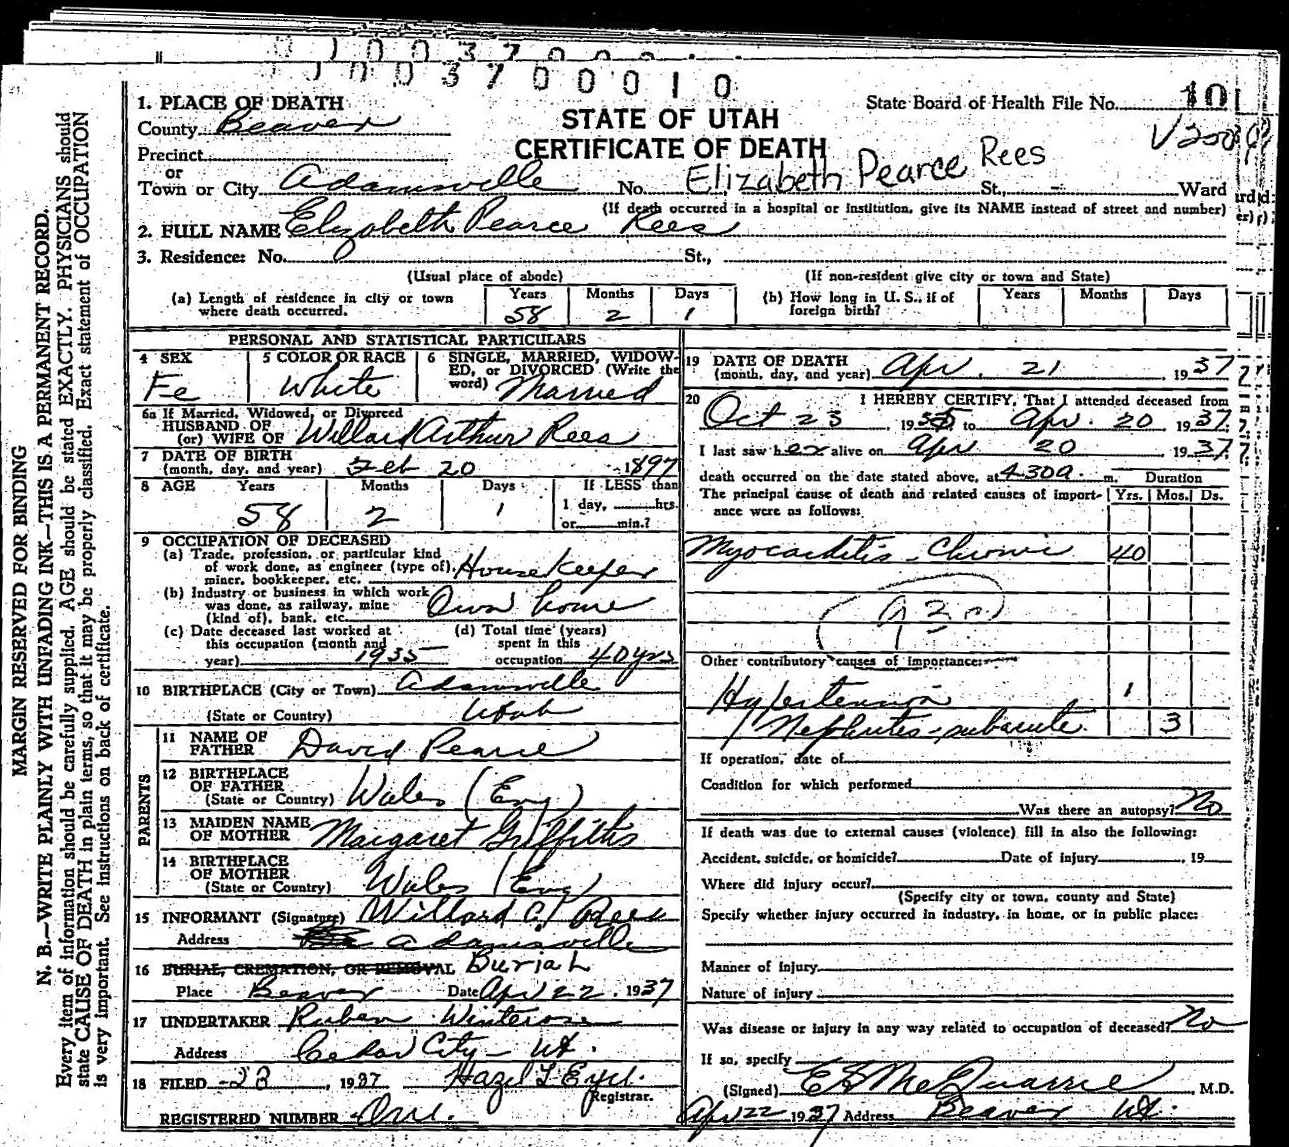 0 1 0 0 3 7 0 0 0
1 0 0 3 7 0 0 0 1 0
1. PLACE OF DEATH
County Beaver
Precinct
or
Town or City Adamsville
STATE OF UTAH
CERTIFICATE OF DEATH
State Board of Health File No. 10
No. Elizabeth Pearce Rees St., - Ward
(If death occurred in a hospital or institution, give its NAME instead of street and number)
2. FULL NAME Elizabeth Pearce Rees
3. Residence: No. St.,
(Usual place of abode) (If non-resident give city or town and State)
(a) Length of residence in city or town where death occurred. Years 58 Months 2 Days 1
(b) How long in U. S., if of foreign birth? Years Months Days
PERSONAL AND STATISTICAL PARTICULARS
4 SEX Fe
5 COLOR OR RACE White
6 SINGLE, MARRIED, WIDOWED, or DIVORCED (Write the word) Married
6a If Married, Widowed, or Divorced
HUSBAND OF
(or) WIFE OF Willard Arthur Rees
7 DATE OF BIRTH
(month, day, and year) Feb 20 1897
8 AGE Years 58 Months 2 Days 1 If LESS than
1 day, hrs.
or min.?
9 OCCUPATION OF DECEASED
(a) Trade, profession, or particular kind
of work done, as engineer (type of), Housekeeper
miner, bookkeeper, etc.
(b) Industry or business in which work
was done, as railway, mine Own home
(kind of), bank, etc.
(c) Date deceased last worked at
this occupation (month and
year) 1935
(d) Total time (years)
spent in this
occupation 40 yrs
10 BIRTHPLACE (City or Town) Adamsville
(State or Country) Utah
PARENTS
11 NAME OF
FATHER David Pearce
12 BIRTHPLACE
OF FATHER
(State or Country) Wales (Eng)
13 MAIDEN NAME
OF MOTHER Margaret Griffiths
14 BIRTHPLACE
OF MOTHER
(State or Country) Wales (Eng)
15 INFORMANT (Signature) Willard A Rees
Address Adamsville
16 BURIAL, CREMATION, OR REMOVAL Burial
Place Beaver Date Apr 22 1937
17 UNDERTAKER Ruben Winterose
Address Cedar City - Ut.
18 FILED -23, 1937 Hazel
Registrar.
REGISTERED NUMBER One.
19 DATE OF DEATH
(month, day, and year) Apr. 21 1937
20 I HEREBY CERTIFY, That I attended deceased from
Oct 23, 1935 to Apr. 20 1937
I last saw her alive on Apr 20 1937
death occurred on the date stated above, at 4 30 a. m. Duration
The principal cause of death and related causes of importance were as follows: Yrs. Mos. Ds.
Myocarditis - Chronic 40
Other contributory causes of importance:
Hypertension 1
Nephrites - subacute 3
If operation, date of
Condition for which performed
Was there an autopsy? No
If death was due to external causes (violence) fill in also the following:
Accident, suicide, or homicide? Date of injury , 19
Where did injury occur?
(Specify city or town, county and State)
Specify whether injury occurred in industry, in home, or in public place:
Manner of injury
Nature of injury
Was disease or injury in any way related to occupation of deceased? No
If so, specify
(Signed) McQuarrie M.D.
Apr 22 1937 Address Beaver Ut.
MARGIN RESERVED FOR BINDING
N. B.—WRITE PLAINLY WITH UNFADING INK—THIS IS A PERMANENT RECORD.
Every item of information should be carefully supplied. AGE should be stated EXACTLY. PHYSICIANS should
state CAUSE OF DEATH in plain terms, so that it may be properly classified. Exact statement of OCCUPATION
is very important. See instructions on back of certificate.